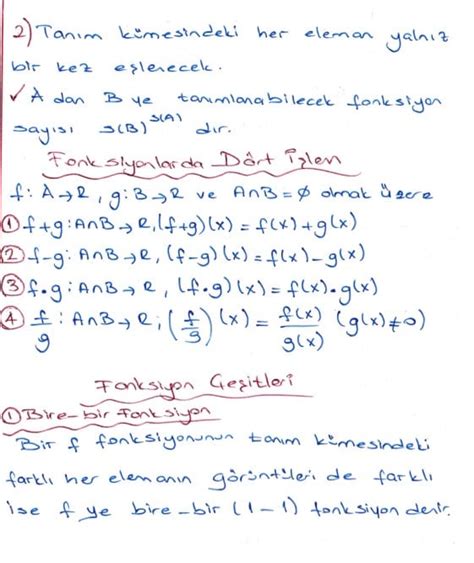 2) Tanım kümesindeki her eleman yalnız
bir kez eşlenecek.
✓ A dan B ye tanımlanabilecek fonksiyon
sayısı s(B)^s(A) dır.
Fonksiyonlarda Dört İşlem
f: A→R, g: B→R ve A∩B=∅ olmak üzere
① f+g: A∩B→R, (f+g)(x) = f(x)+g(x)
② f-g: A∩B→R, (f-g)(x) = f(x)-g(x)
③ f•g: A∩B→R, (f•g)(x) = f(x)•g(x)
④ f/g : A∩B→R, (f/g)(x) = f(x)/g(x) (g(x)≠0)
Fonksiyon Çeşitleri
① Bire-bir Fonksiyon
Bir f fonksiyonunun tanım kümesindeki
farklı her elemanın görüntüleri de farklı
ise f ye bire-bir (1-1) fonksiyon denir.